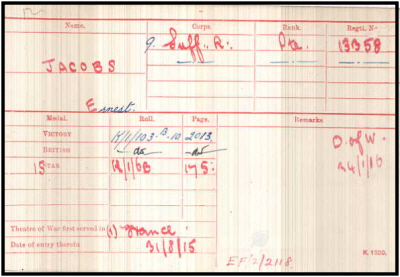 Name. Corps. Rank. Regtl. No
9. Suff. R. Pte. 13358
JACOBS
Ernest.
Medal. Roll. Page. Remarks
VICTORY K/1/103.B.10 2013.
BRITISH do do
15 STAR K/1/6B 175.
D. of W.
24/1/16
Theatre of War first served in (1) France
Date of entry therein 31/8/15
EF/2/2118
K. 1380.